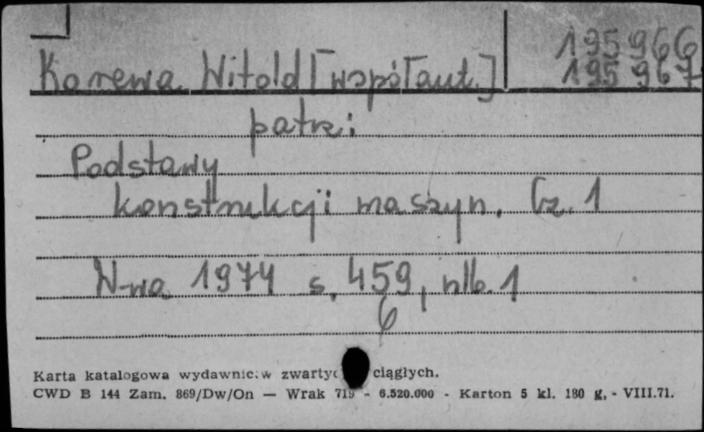 195966
Korewa Witold [współaut.] 195967
patrz:
Podstawy
konstrukcji maszyn. Cz. 1
W-wa 1974 s. 459, nlb. 1
6
Karta katalogowa wydawnic.w zwarty ciągłych.
CWD B 144 Zam. 869/Dw/On — Wrak 719 - 6.520.000 - Karton 5 kl. 180 g, - VIII.71.